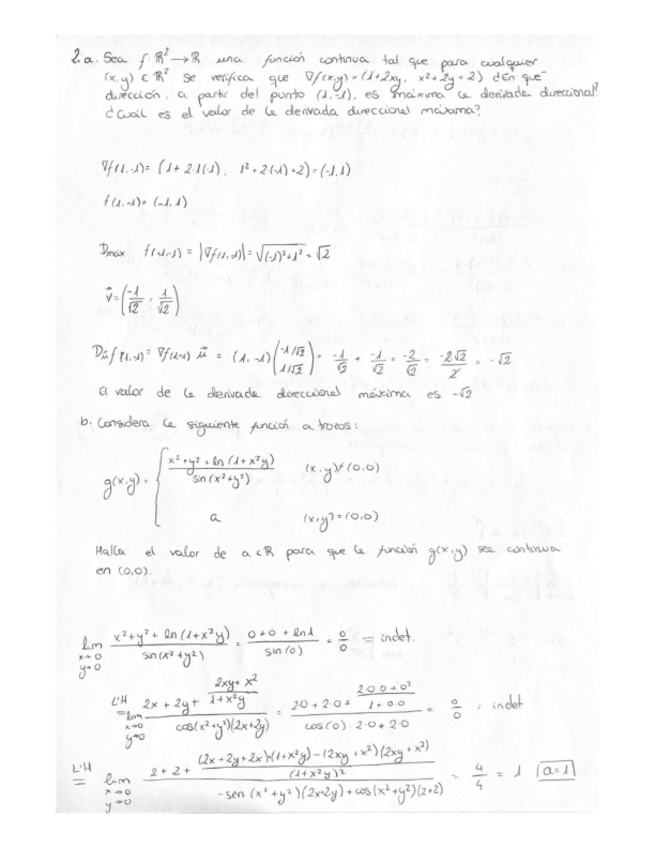 2.a. Sea f: ℝ² → ℝ una función continua tal que para cualquier
(x,y) ∈ ℝ² se verifica que ∇f(x,y) = (1+2xy, x²+2y+2) ¿En qué
dirección, a partir del punto (1,-1), es máxima la derivada direccional?
¿Cuál es el valor de la derivada direccional máxima?
∇f(1,-1) = (1+2·1(-1), 1²+2(-1)+2) = (-1,1)
f(1,-1) = (-1,1)
Dmáx f(-1,-1) = |∇f(1,-1)| = √(-1)²+1² = √2
v⃗ = (-1/√2, 1/√2)
Dᵤ⃗ f(1,-1) = ∇f(1,-1) u⃗ = (1,-1) (-1/√2 1/√2) = -1/√2 + -1/√2 = -2/√2 = -2√2/2 = -√2
El valor de la derivada direccional máxima es -√2
b. Considera la siguiente función a trozos:
g(x,y) = { x²+y²+ln(1+x²y) / sin(x²+y²) (x,y)≠(0,0)
a (x,y)=(0,0)
Halla el valor de a ∈ ℝ para que la función g(x,y) sea continua
en (0,0).
lim x→0 y→0 x²+y²+ln(1+x²y) / sin(x²+y²) = 0+0+ln1 / sin(0) = 0/0 = indet.
L'H = lim x→0 y→0 2x+2y+ 2xy+x²/1+x²y / cos(x²+y²)(2x+2y) = 2·0+2·0+ 2·0·0+0²/1+0·0 / cos(0)·2·0+2·0 = 0/0 = indet
L'H = lim x→0 y→0 2+2+ (2x+2y+2x)·(1+x²y)-(2xy+x²)(2xy+x²)/(1+x²y)² / -sen(x²+y²)(2x+2y)+cos(x²+y²)(2+2) = 4/4 = 1 a=1